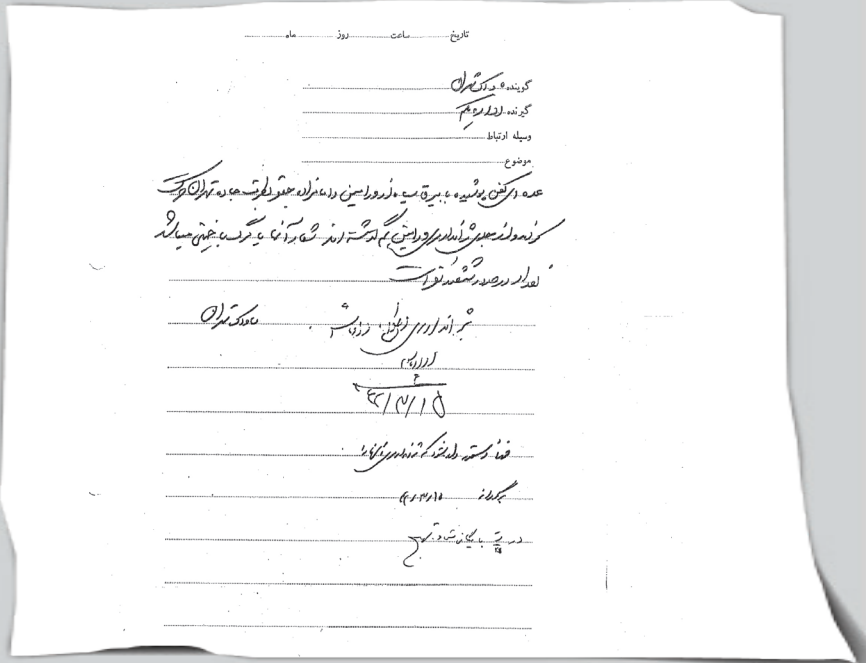 تاریخ ساعت روز ماه
گوینده ساواک تهران
گیرنده اداره یکم
وسیله ارتباط
موضوع
عده ای کفن پوشیده با بیرق سیاه از ورامین و امامزاده جعفر بطرف جاده تهران حرکت
کرده و از جلوی ژاندارمری ورامین هم گذشته اند شعار آنها یا مرگ یا خمینی میباشد
تعداد درحدود ششصد نفر است
ژاندارمری ساواک تهران
۴۲/۳/۱۵
فوراً دستور داده شود که ژاندارمری
۴۲/۳/۱۵
در بایگانی شود